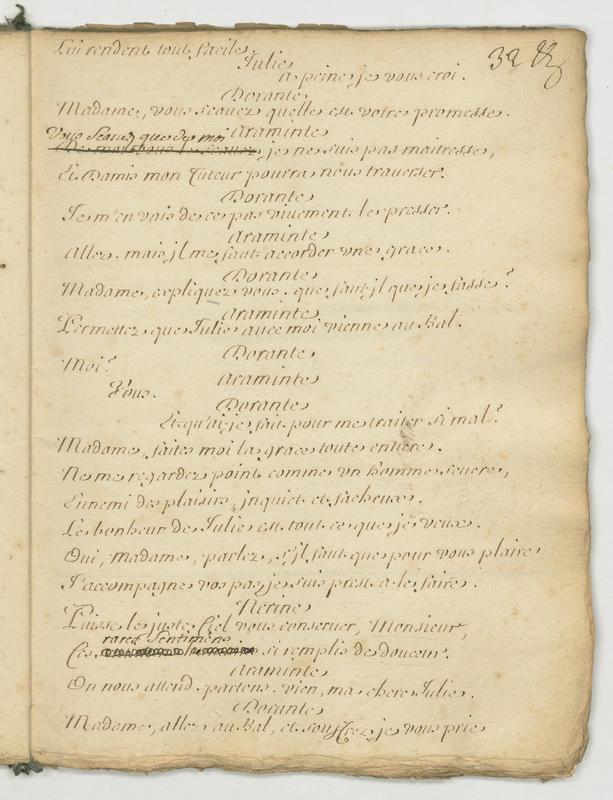 Lui rendent tout facile.
32
Julie
a peine je vous croi.
Dorante
Madame, vous scavez quelle est votre promesse.
Araminte
Vous scavez que de moi
De moi vous le scavez je ne suis pas maitresse,
Et Damis mon Tuteur pourra nous traverser.
Dorante
Je m'en vais de ce pas vivement le presser.
Araminte
Allez. mais jl me faut accorder vne grace.
Dorante
Madame, expliquez vous. que faut jl que je fasse?
Araminte
Permettez que Julie avec moi vienne au Bal.
Dorante
Moi?
Araminte
Vous.
Dorante
Et qu'ai je fait pour me traiter si mal?
Madame, faites moi la grace toute entiere.
Ne me regardez point comme vn homme severe,
Ennemi des plaisirs, jnquiet et facheux.
Le bonheur de Julie est tout ce que je veux.
Oui, Madame, parlez, s'jl faut que pour vous plaire
J'accompagne vos pas, je suis prest a le faire.
Nerine
Puisse le juste Ciel vous conserver, Monsieur,
rares sentimens
Ces si remplis de douceur.
Araminte
On nous attend. partons. vien, ma chere Julie.
Dorante
Madame, allez au Bal, et souffrez je vous prie